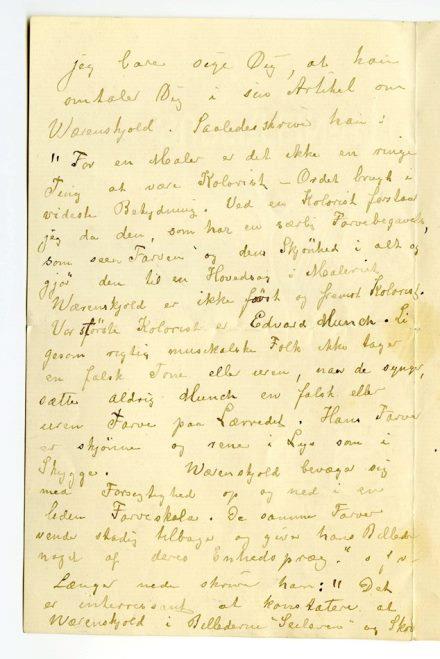 jeg bare sige Dig, at han
omtaler Dig i sin Artikel om
Wærenskjold. Saaledes skriver han:
"For en Maler er det ikke en ringe
Ting at være Kolorist – Ordet brugt i
videste Betydning. Ved en Kolorist forstaar
jeg da den, som har en særlig Farvebegavelse,
som seer Farven og dens Skjønhed i alt og
gjør den til en Hovedsag i Maleriet.
Wærenskjold er ikke først og fremst Kolorist.
Vor første Kolorist er Edvard Munch. Li
gesom rigtig musikalske Folk ikke tager
en falsk Tone eller uren, naar de synger,
sætter aldrig Munch en falsk eller
uren Farve paa Lærredet. Hans Farver
er skjønne og rene i Lys som i
Skygge. Wærenskjold bevæger sig
med Forsigtighed op og ned i en
liden Farveskala. De samme Farver
vende stadig tilbage og giver hans Billeder
noget af deres Enhedspræg." o s v
Længer nede skriver han: "Det
er interressant at konstatere at
Wærenskjold i Billederne "Seileren" og Skov